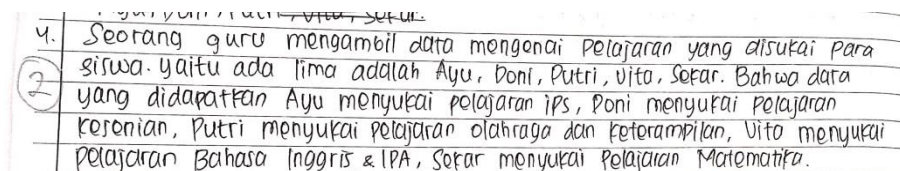 4. Seorang guru mengambil data mengenai Pelajaran yang disukai para
2 siswa. yaitu ada lima adalah Ayu, Doni, Putri, Vita, Sekar. Bahwa data
yang didapatkan Ayu menyukai pelajaran ips, Doni menyukai pelajaran
kesenian, Putri menyukai pelajaran olahraga dan keterampilan, Vita menyukai
pelajaran Bahasa Inggris & IPA, Sekar menyukai Pelajaran Matematika.